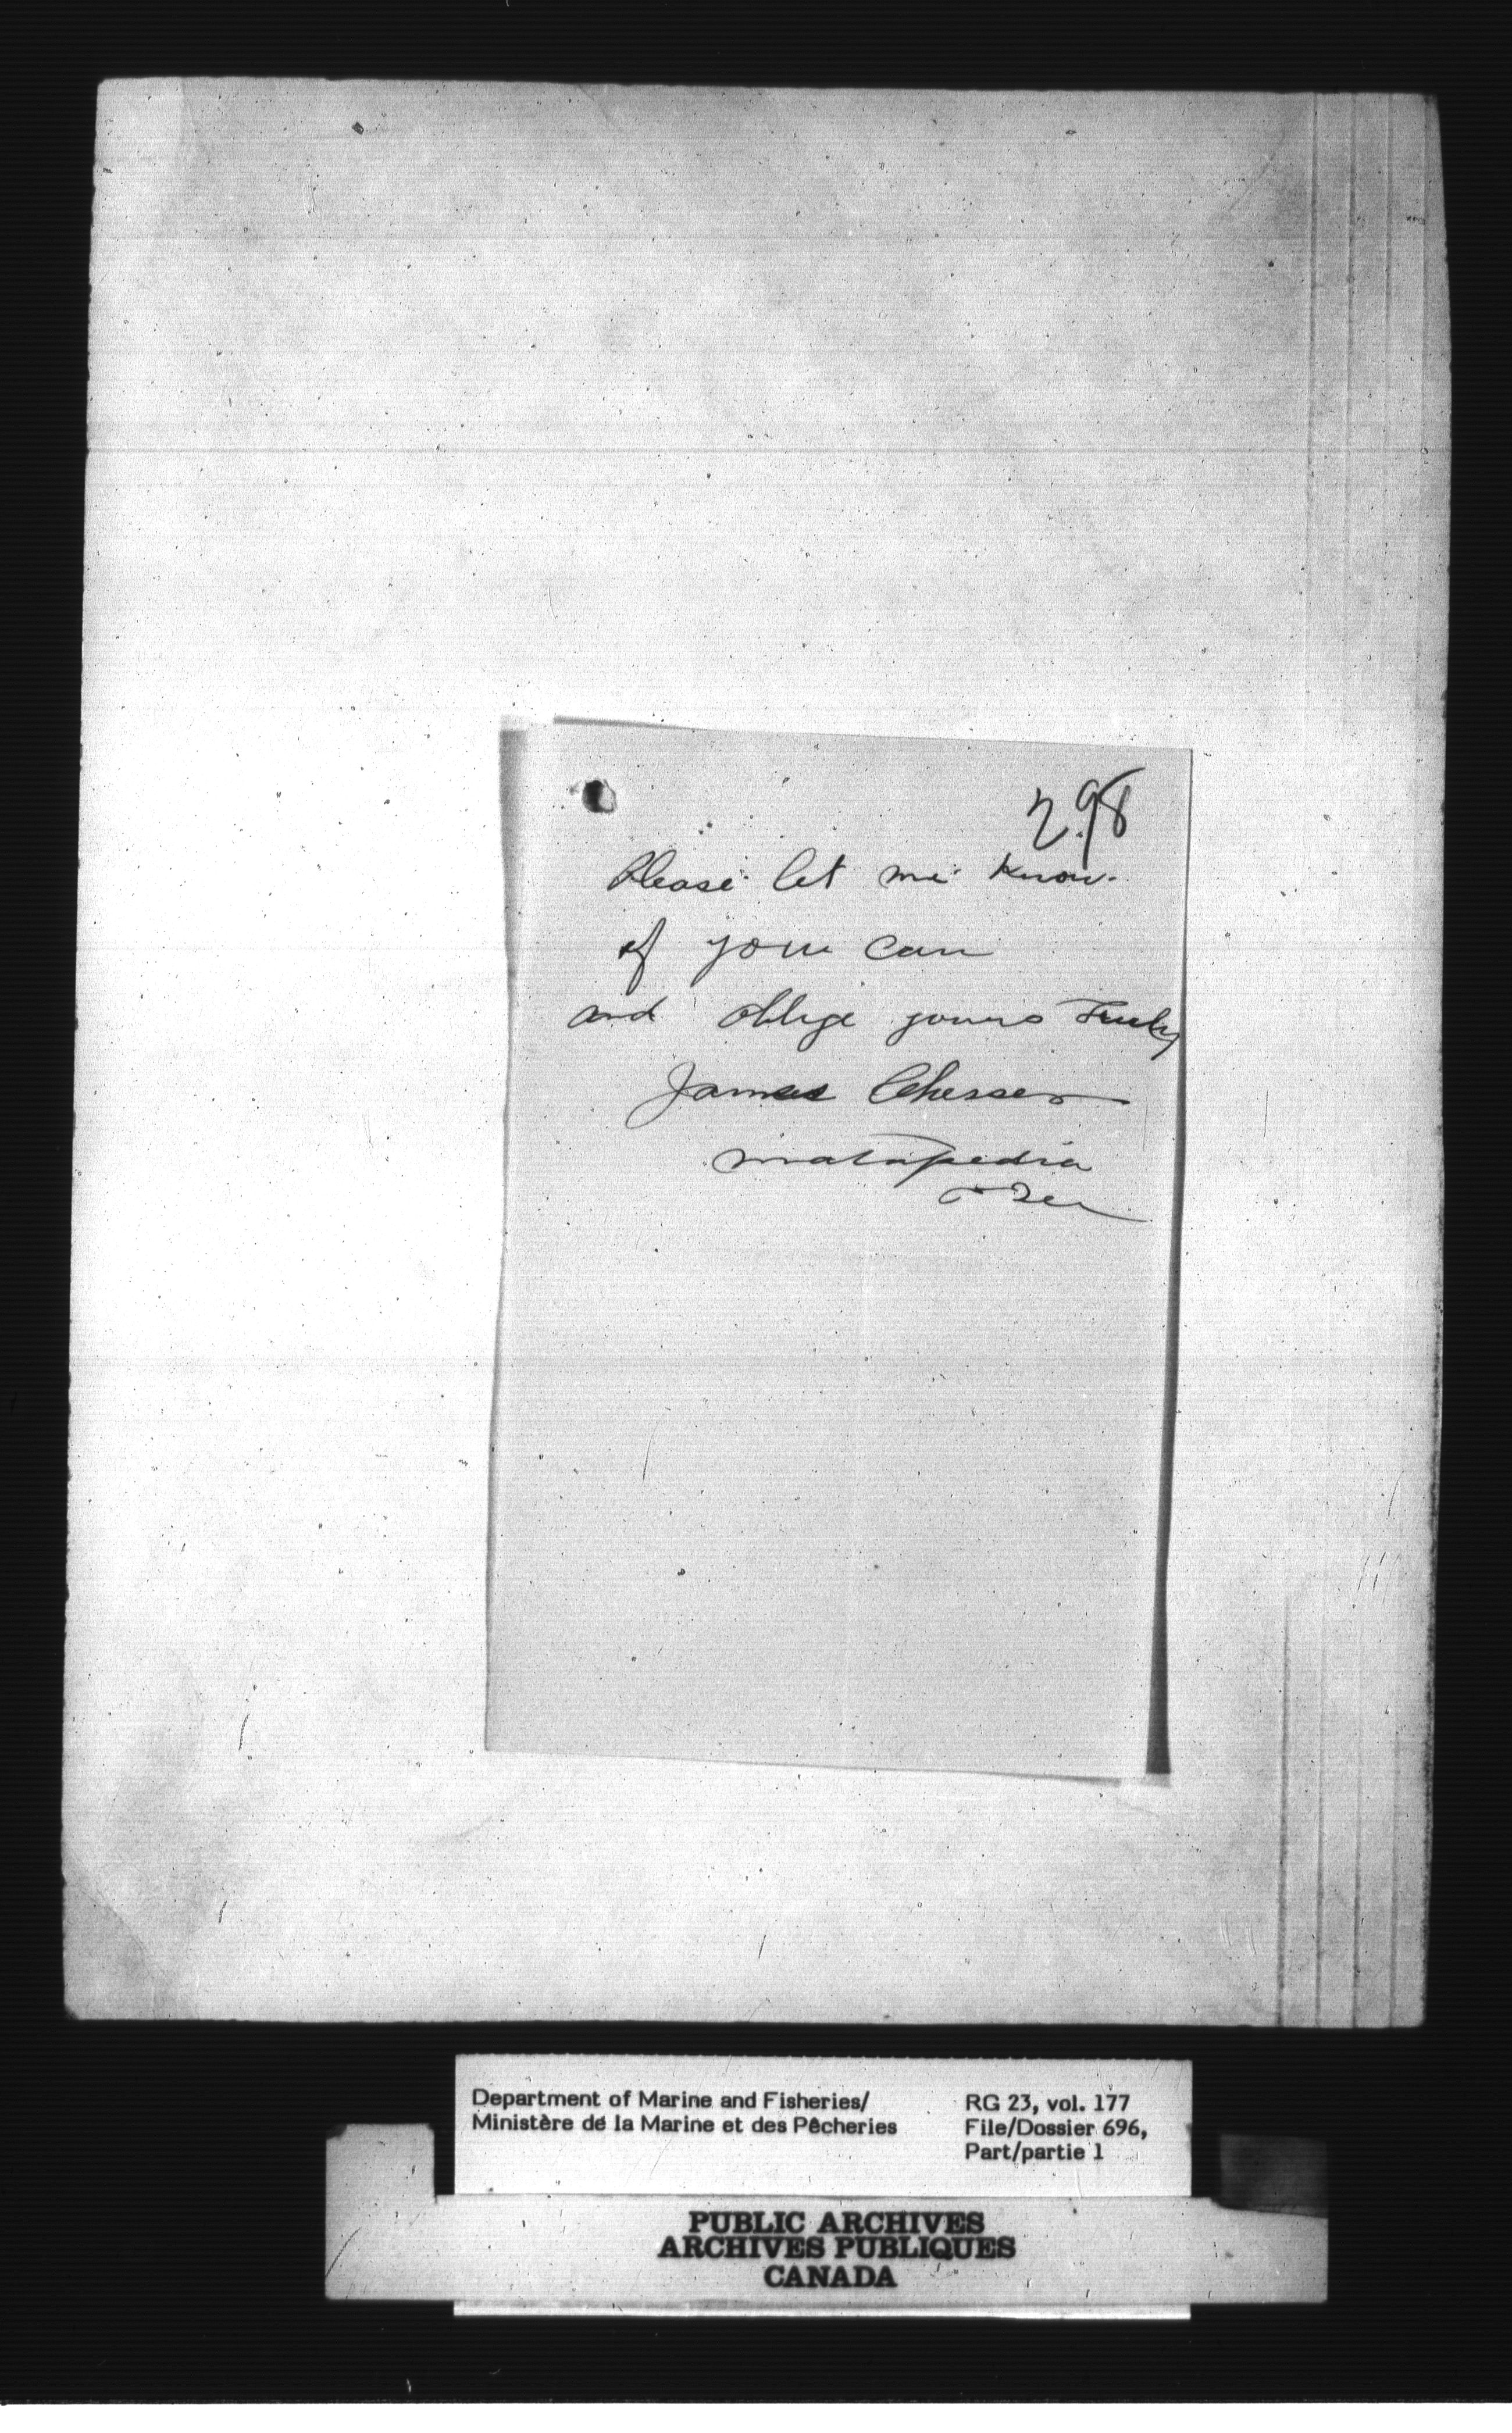 298
Please let me know
if you can
and oblige yours Truly
James Chesser
matapedia
Department of Marine and Fisheries/
Ministère de la Marine et des Pêcheries
RG 23, vol. 177
File/Dossier 696,
Part/partie 1
PUBLIC ARCHIVES
ARCHIVES PUBLIQUES
CANADA